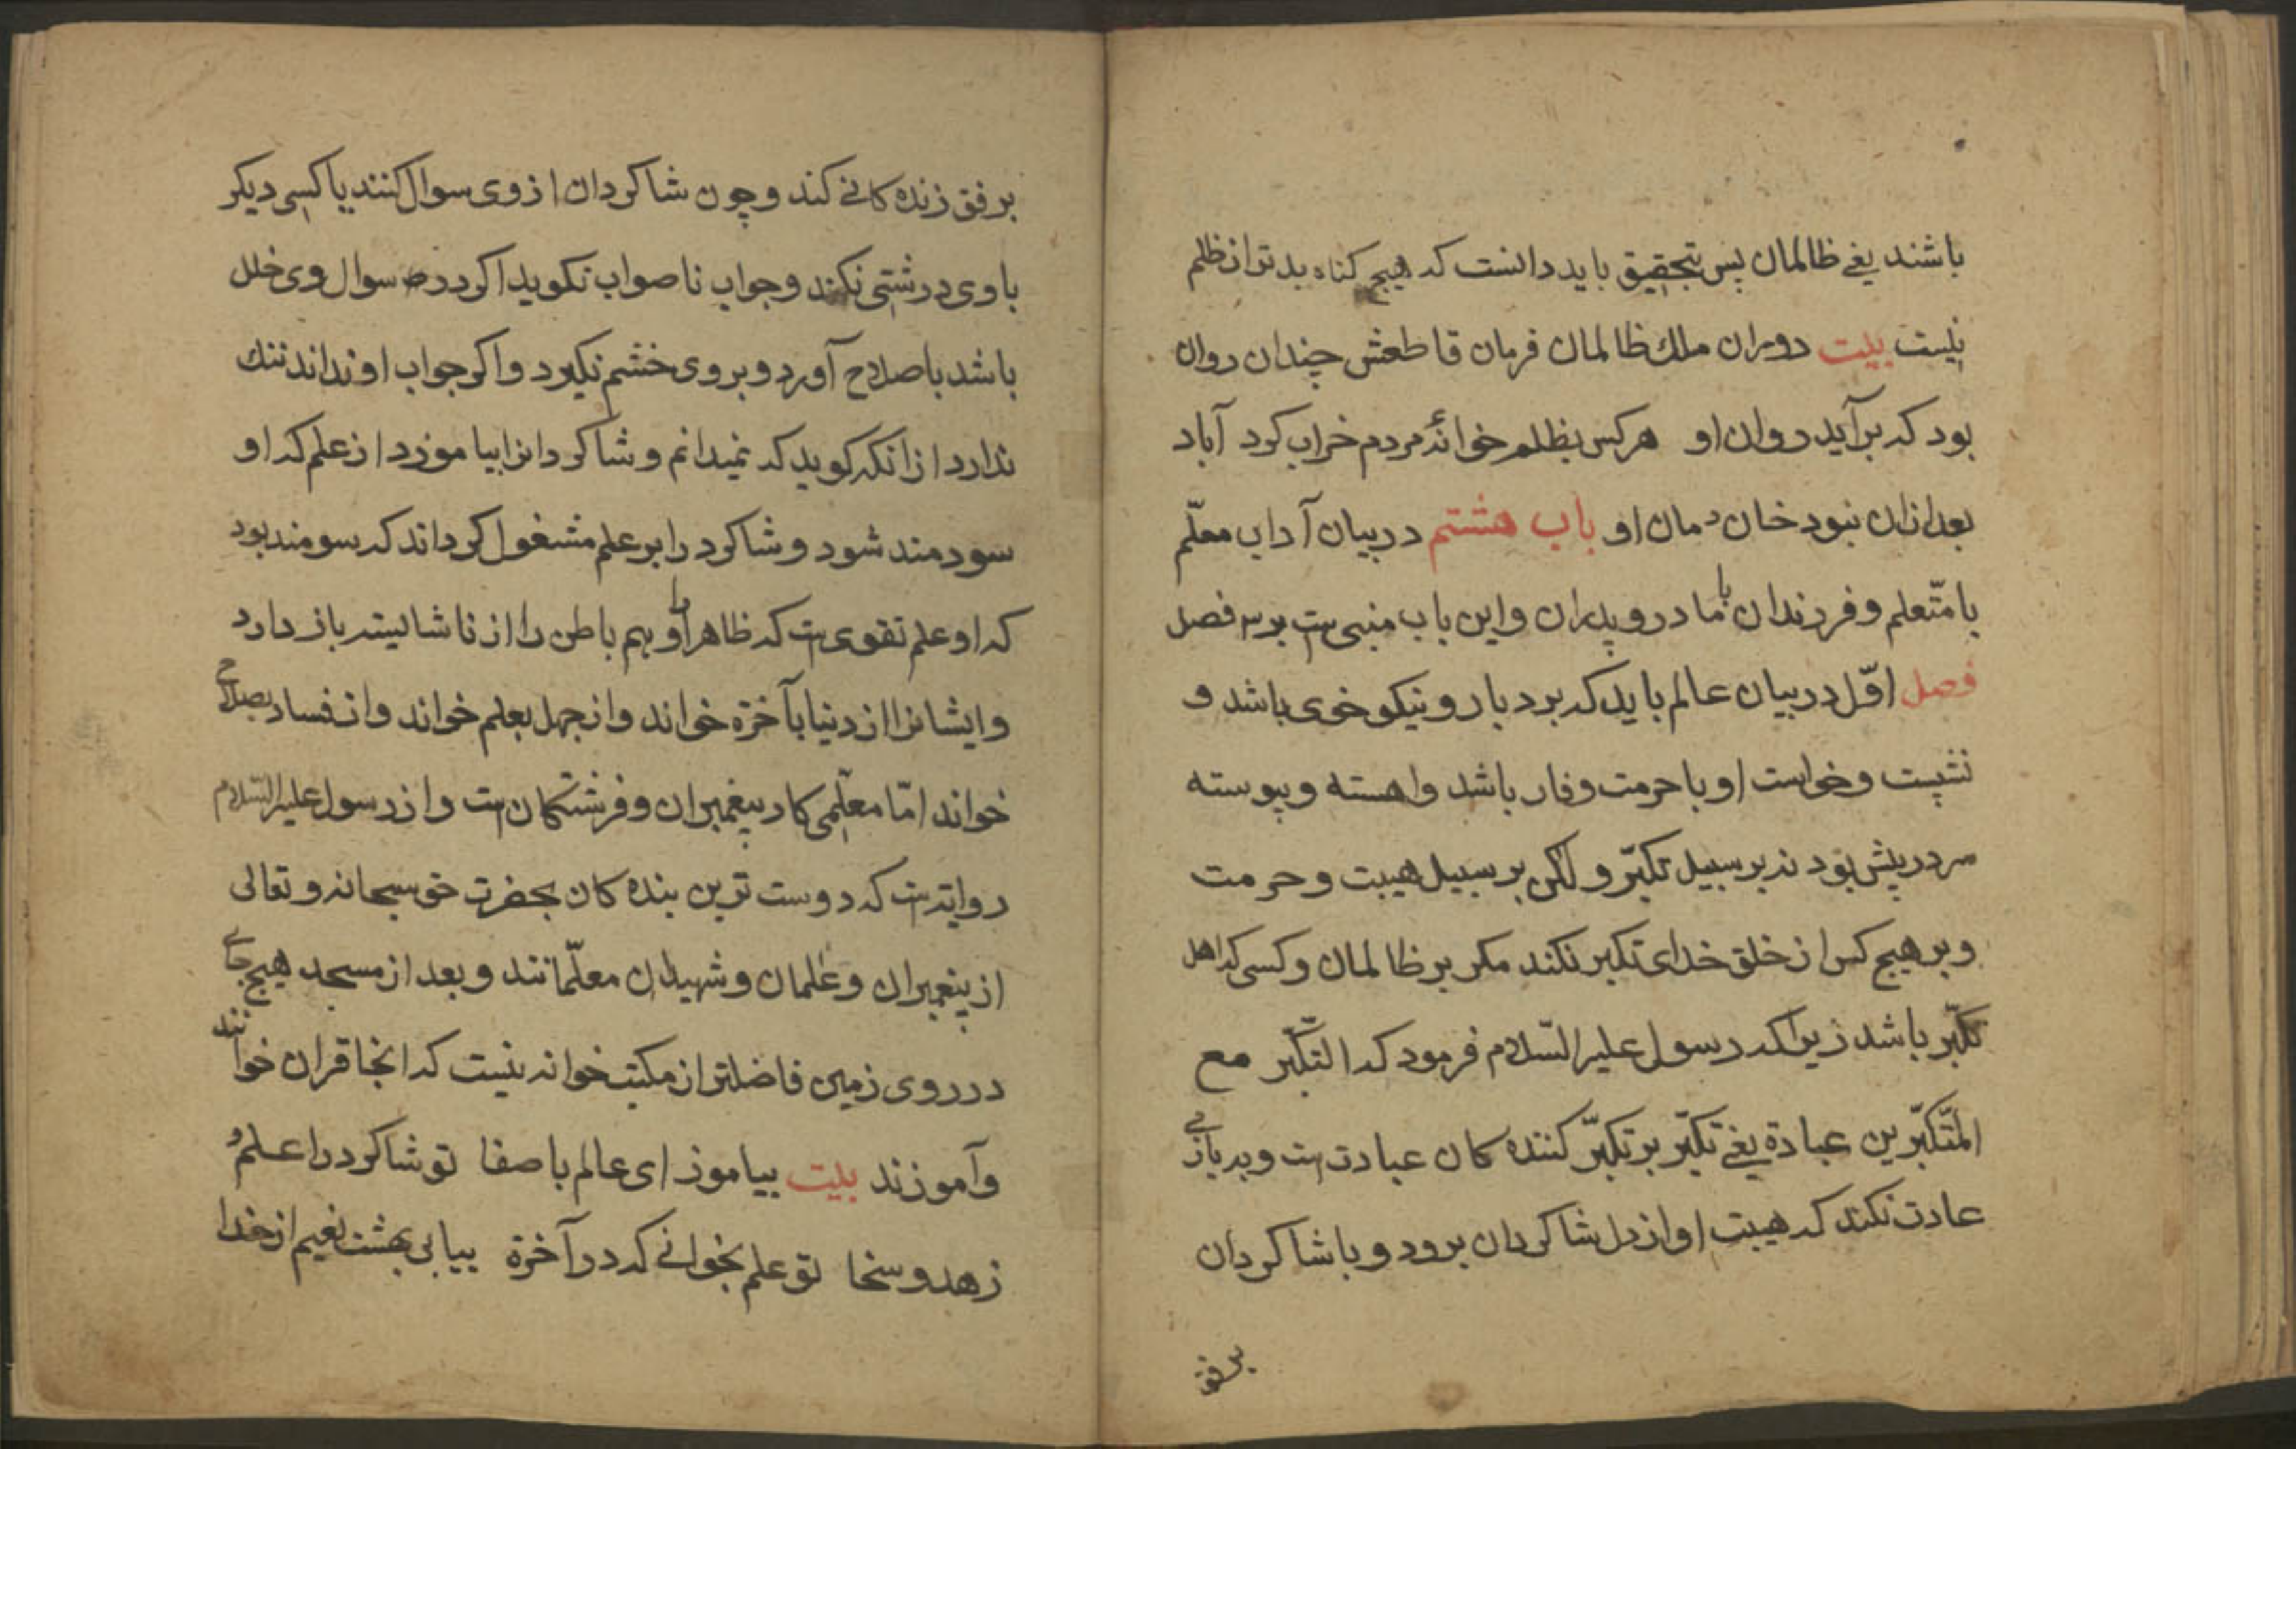 باشند یعنی ظالمان پس بتحقیق باید دانست که هیچ کناه بدتر از ظلم
نیست بیت دوران ملک ظالمان فرمان قاطعش چندان روان
بود که برآید روان او هرکس بظلم خوانۀ مردم خراب کرد آباد
بعد ازان نبود خان و مان او باب هشتم در بیان آداب معلّم
با متّعلم و فرزندان با مادر و پدران و این باب منبی است بر سه فصل
فصل اوّل در بیان عالم باید که بردبار و نیکو خوی باشد و
نشست و خواست او با حرمت وقار باشد واهسته و پیوسته
سر در پیش بود نه بر سبیل تکبّر ولکن بر سبیل هیبت و حرمت
و بر هیچ کس از خلق خدای تکبر نکند مکر بر ظالمان و کسی که اهل
تکبّر باشد زیراکه رسول علیه السّلام فرمود که التکبّر مع
المتّکبّرین عبادة یعنی تکبّر بر تکبّر کننده کان عبادت است و ببازی
عادت نکند که هیبت او از دل شاکردان برود و با شاکردان
برفق
برفق زنده کانی کند و چون شاکردان از وی سوال کنند یا کسی دیکر
با وی درشتی نکند و جواب ناصواب نکوید اکر در سوال وی خلل
باشد باصلاح آورد و بر وی خشم نکیرد و اکر جواب او نداند ننك
ندارد از انکه کوید که نمیدانم و شاکردانرا بیاموزد از علم که او
سودمند شود و شاکرد را بر علم مشغول کرداند که سومند بود
که او علم تقوی است که ظاهر او را و هم باطن را از ناشایسته باز دارد
و ایشانرا از دنیا بآخرة خواند و از جهل بعلم خواند و از فساد بصلاح
خواند امّا معلّمی کار پیغمبران و فرشتکان است و از رسول علیه السّلام
روایت است که دوست ترین بنده کان بحضرت حق سبحانه و تعالی
از پیغمبران و عٰلمان و شهیدان معلّمانند و بعد از مسجد هیچ جای
در روی زمین فاضلتر از مکتب خوانه نیست که انجا قران خوانند
و آموزند بیت بیاموز ای عالم با صفا تو شاکرد را علم و
زهد و سخا تو علم بخوانی که در آخرة بیابی بهشت نعیم از خدا